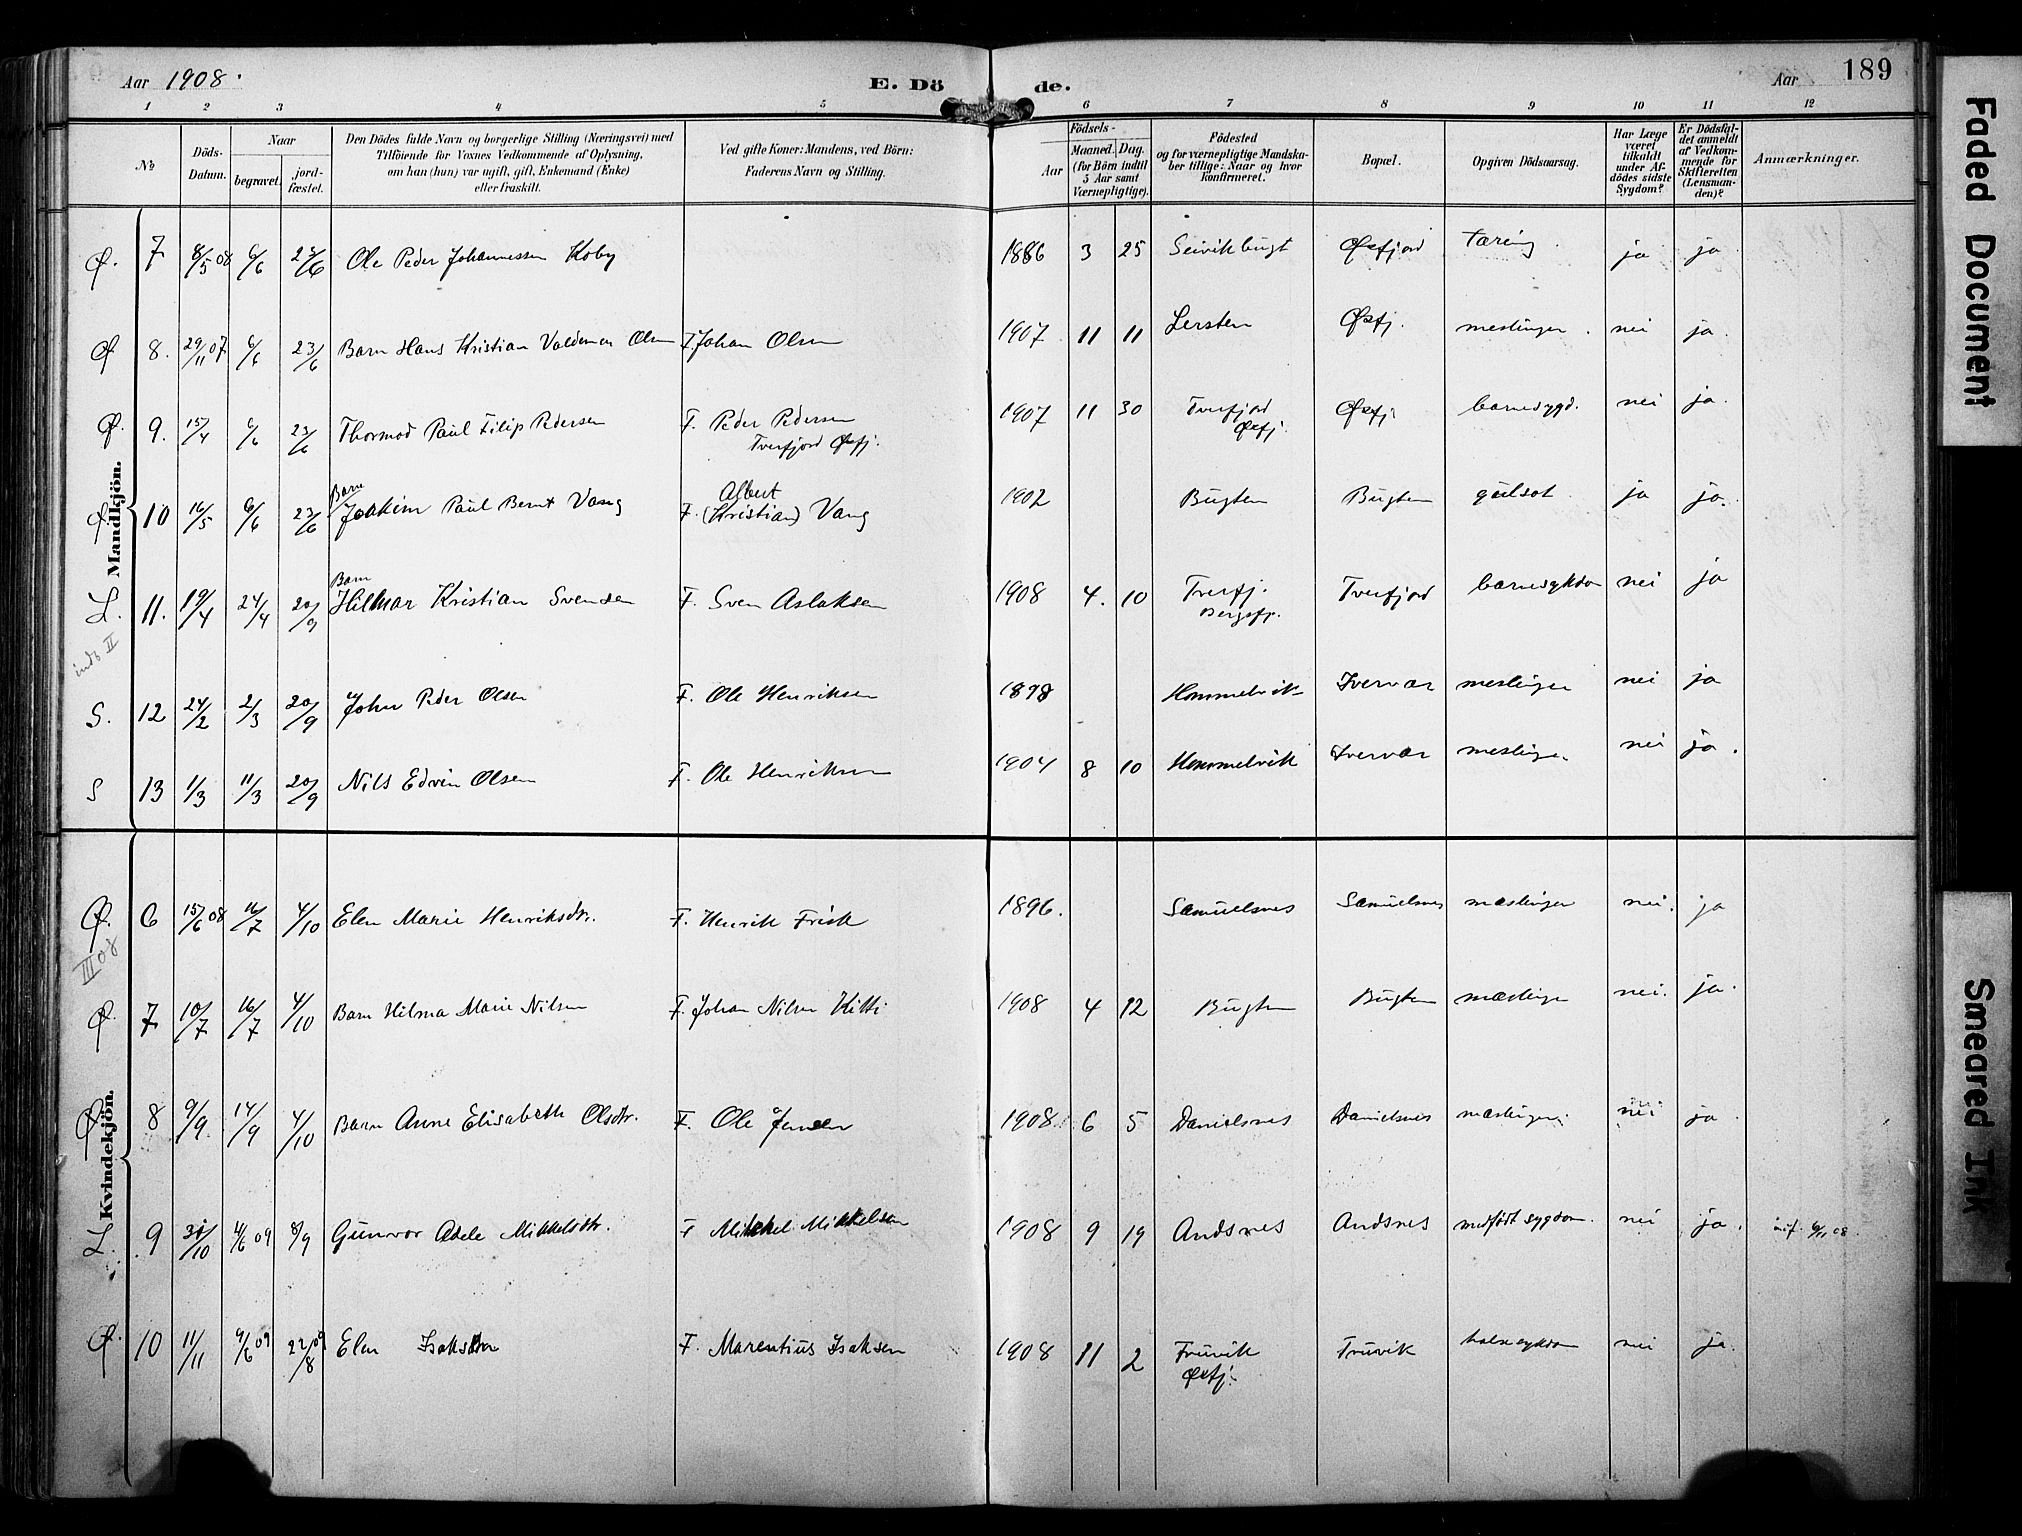 Aar 1908.
E. Dö de.
Aar
189
1 2 3 4 5 6 7 8 9 10 11 12
No
Döds-Datum.
Naar
begravet.
jord-fæstet.
Den Dödes fulde Navn og borgerlige Stilling (Næringsvei) med
Tilföiende for Voxnes Vedkommende af Oplysning,
om han (hun) var ugift, gift, Enkemand (Enke)
eller fraskilt.
Ved gifte Koner: Mandens, ved Börn:
Faderens Navn og Stilling.
Födsels-
Aar
Maaned. Dag.
(for Börn indtil
5 Aar samt
Værnepligtige).
Födested
og for værnepligtige Mandska-
ber tillige: Naar og hvor
konfirmeret.
Bopæl.
Opgiven Dödsaarsag.
Har Læge
været
tilkaldt
under Af-
dödes sidste
Sygdom?
Er Dödsfal-
det anmeldt
af Vedkom-
mende for
Skifteretten
(Lensman-
den)?
Anmærkninger.
Mandkjön.
Ø. 7 8/5 08 6/6 23/6 Ole Peder Johannessen Koby 1886 3 25 Seivikbugt Øxfjord tæring. ja ja.
Ø 8. 29/11 07 6/6 23/6 Barn Hans Kristian Valdemar Olsen F. Johan Olsen 1907 11 11 Lersten Øxfj. meslinger. nei ja.
Ø. 9. 15/4 6/6 23/6 Thormod Paul Filip Pedersen F. Peder Pedersen 1907 11 30 Tverfjord Øxfj. barnesygd. nei ja.
Tverfjord Øxfj. Øxfj.
Ø. 10 16/5 6/6 23/6 Barn Joakim Paul Bernt Vang F. Albert (Kristian) Vang 1902 Bugten Bugten gulsot ja ja.
L. 11. 19/4 24/4 20/9 Barn Hilmar Kristian Svendsen F. Sven Aslaksen 1908 4. 10 Tverfj. Tverfjord barnesykdom nei ja
indb II Bergsfj.
S. 12 24/2 2/3 20/9 John Peder Olsen F. Ole Henriksen 1898 Hommelvik Ivervær meslinger nei ja
S 13 1/3 11/3 20/9 Nils Edvin Olsen F. Ole Henriksen 1904 8 10 Hommelvik Ivervær meslinger. nei ja.
Kvindekjön.
Ø. 6 15/6 08 16/7 4/10 Elen Marie Henriksdtr. F. Henrik Frisk 1896. Samuelsnes Samuelsnes mæslinger nei. ja
III 08
Ø. 7 10/7 16/7 4/10 Barn Hilma Marie Nilsen F. Johan Nilsen Kitti 1908 4 12 Bugten Bugten mæslinger nei. ja.
Ø. 8 9/9. 14/9 4/10 Barn Anne Elisabeth Olsdtr. F. Ole Jensen 1908 6 5 Danielsnes Danielsnes mæslinger. nei ja.
L. 9 31/10 4/6 09 8/9 Gunvor Adele Mikkelsdtr. F Mikkel Mikkelsen 1908 9 19 Andsnes Andsnes medfödt sygdom. nei ja. inf. 6/11 08.
Ø. 10 11/11 9/6 09 22/8 09 Elen Isaksen F. Marentius Isaksen 1908 11 2 Truvik Truvik halsesykdom nei ja.
Øxfj.
Faded Document
Smeared Ink